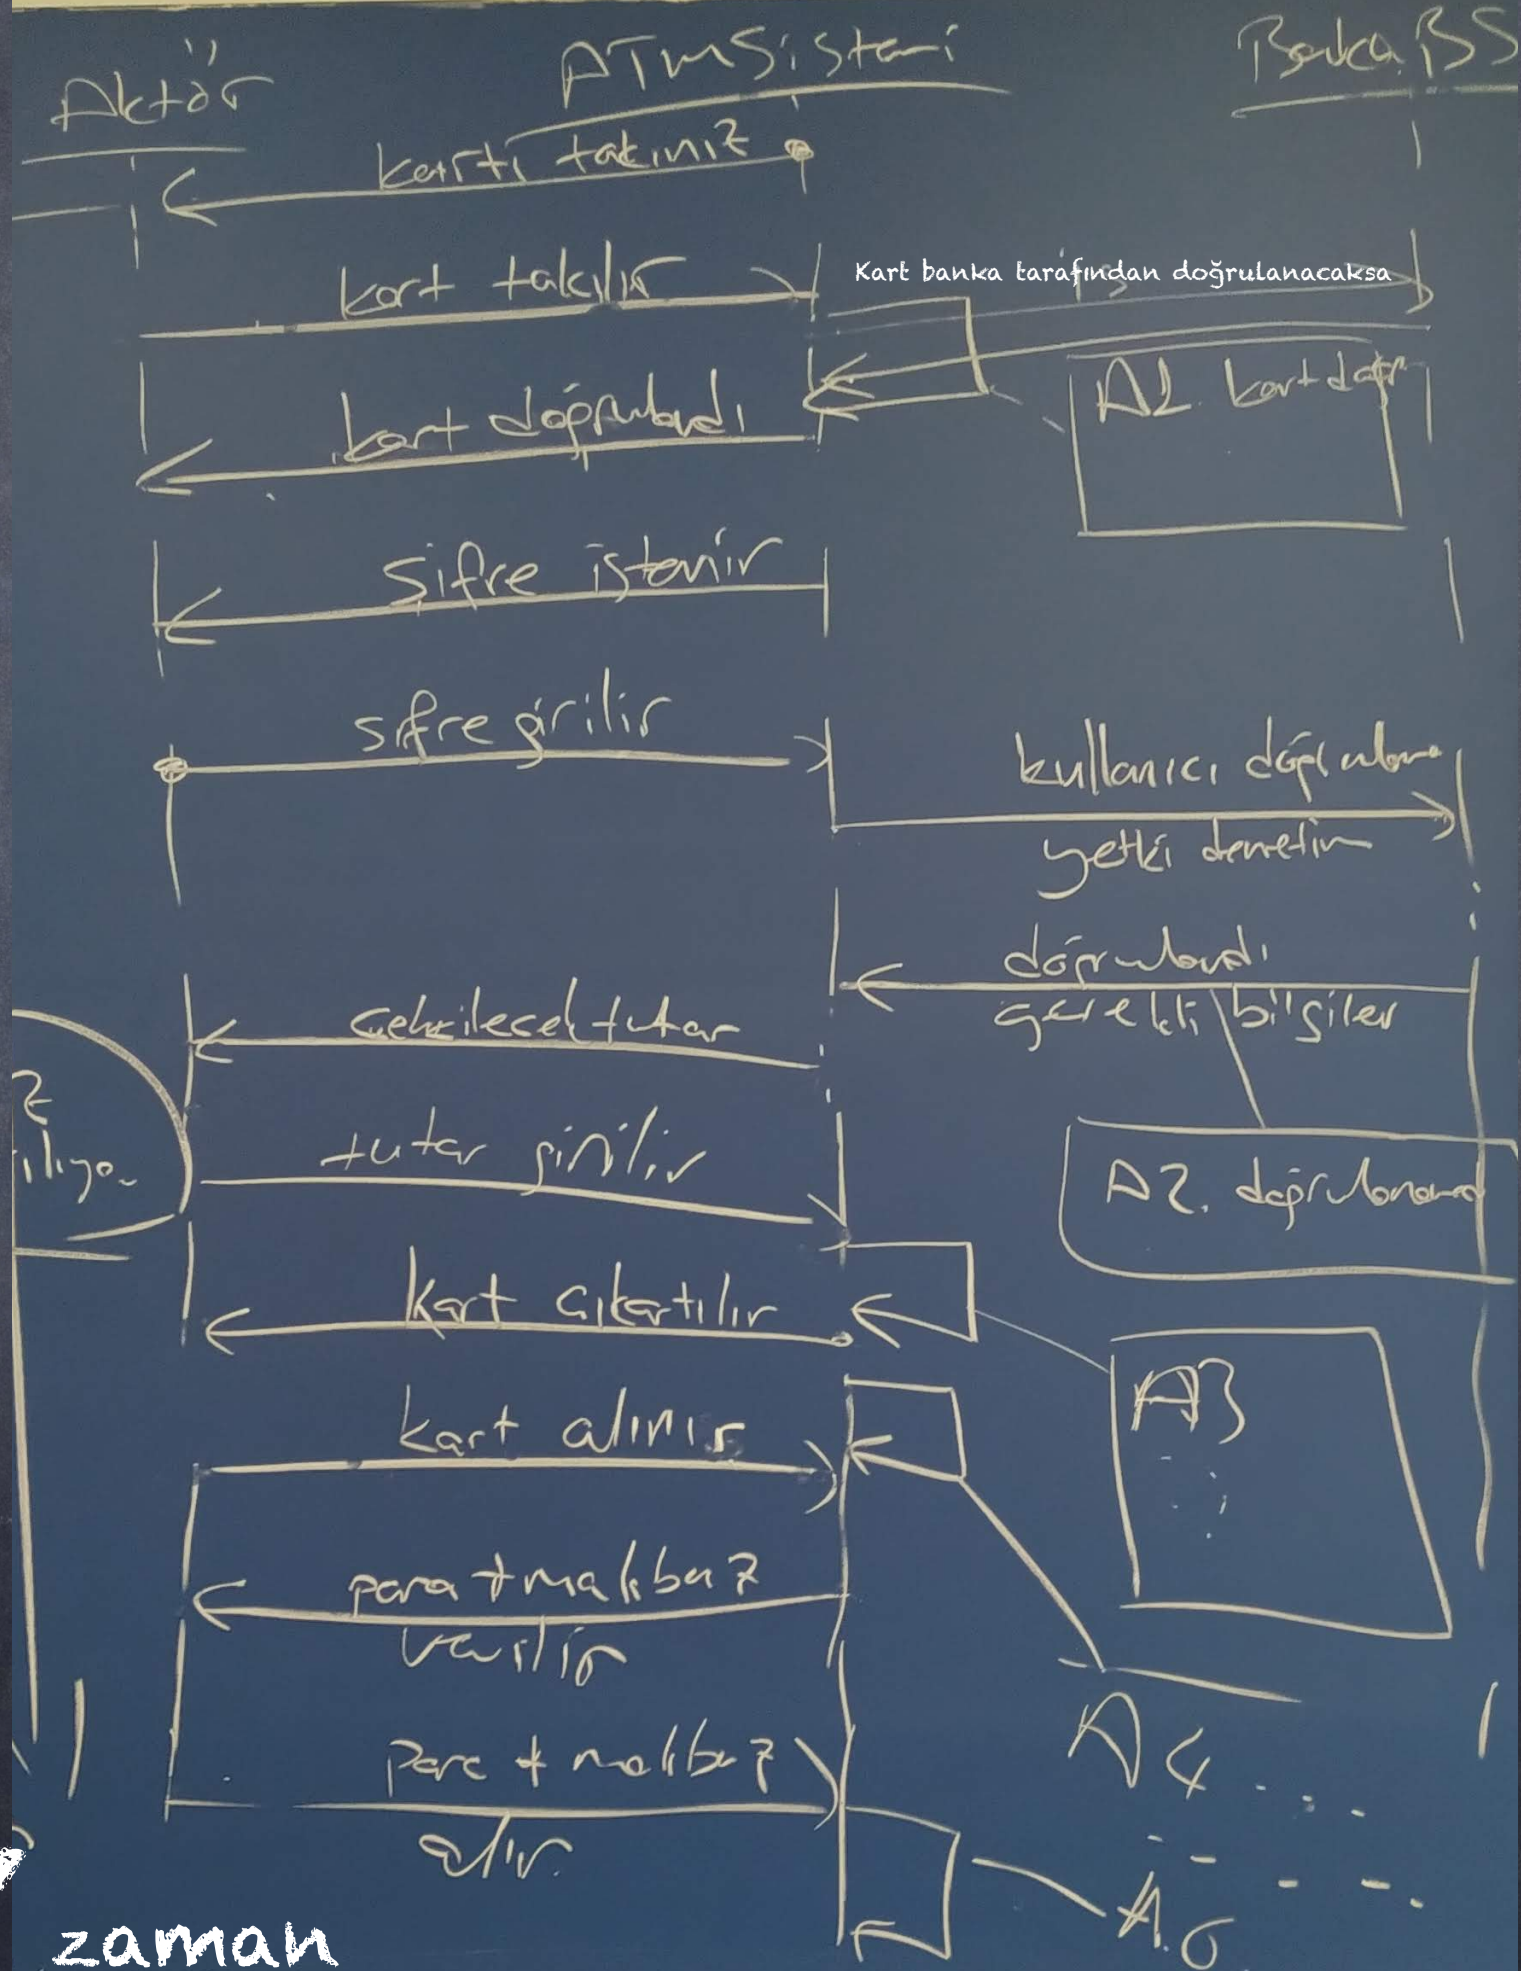 Aktör
ATM Sistemi
Banka BS
kartı takınız
kart takılır
Kart banka tarafından doğrulanacaksa
kart doğrulandı
A1. kart doğr
şifre istenir
şifre girilir
kullanıcı doğrulama
yetki denetim
doğrulandı
gerekli bilgiler
çekilecek tutar
tutar girilir
A2. doğrulanamad
kart çıkartılır
A3
kart alınır
para + makbuz
verilir
A4
para + makbuz
alır.
A.6
zaman